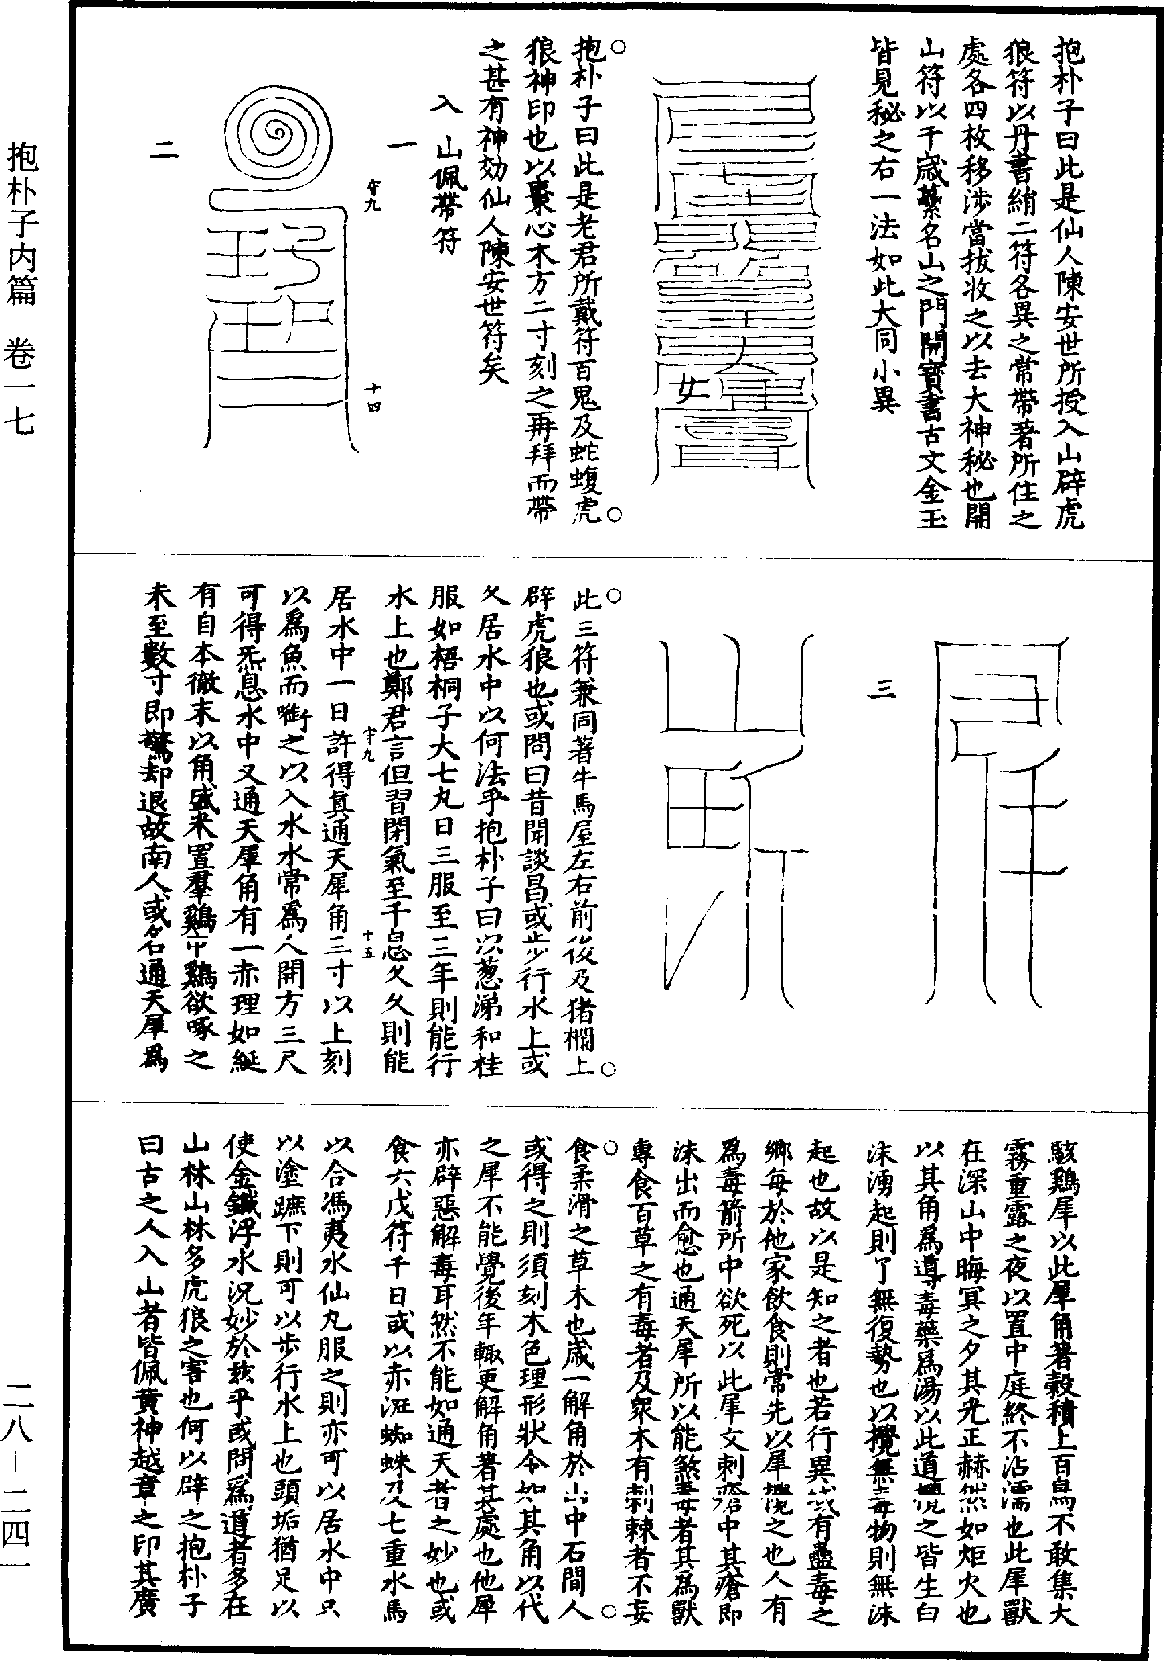 抱朴子曰此是仙人陳安世所授入山辟虎
狼符以丹書絹二符各異之常帶著所住之
處各四枚移涉當拔收之以去大神秘也開
山符以千歲虆名山之門開寶書古文金玉
皆見秘之右一法如此大同小異
抱朴子曰此是老君所戴符百鬼及蛇蝮虎
狼神印也以棗心木方二寸刻之再拜而帶
之甚有神効仙人陳安世符矣
入山佩帶符
一
守九
十四
二
三
此三符兼同著牛馬屋左右前後及猪欄上
辟虎狼也或問曰昔聞談昌或步行水上或
久居水中以何法乎抱朴子曰以葱涕和桂
服如梧桐子大七丸日三服至三年則能行
水上也鄭君言但習閉氣至千息久久則能
守九
十五
居水中一日許得真通天犀角三寸以上刻
以爲魚而衘之以入水水常爲人開方三尺
可得炁息水中又通天犀角有一赤理如綖
有自本徹末以角盛米置羣鷄中鷄欲啄之
未至數寸即驚却退故南人或名通天犀爲
駭鷄犀以此犀角著穀積上百鳥不敢集大
霧重露之夜以置中庭終不沾濡也此犀獸
在深山中晦冥之夕其光正赫然如炬火也
以其角爲導毒藥爲湯以此道攪之皆生白
沫湧起則了無復勢也以攪無毒物則無沫
起也故以是知之者也若行異域有蠱毒之
鄉每於他家飲食則常先以犀攪之也人有
爲毒箭所中欲死以此犀文刺瘡中其瘡即
沫出而愈也通天犀所以能煞毒者其爲獸
專食百草之有毒者及衆木有刺棘者不妄
食柔滑之草木也歲一解角於山中石間人
或得之則須刻木色理形狀令如其角以代
之犀不能覺後年輙更解角著其處也他犀
亦辟惡解毒耳然不能如通天者之妙也或
食六戊符千日或以赤涯蜘蛛及七重水馬
以合馮夷水仙丸服之則亦可以居水中只
以塗蹠下則可以步行水上也頭垢猶足以
使金鐵浮水況妙於茲乎或問爲道者多在
山林山林多虎狼之害也何以辟之抱朴子
曰古之人入山者皆佩黃神越章之印其廣
抱朴子内篇 卷一七
二八－二四一